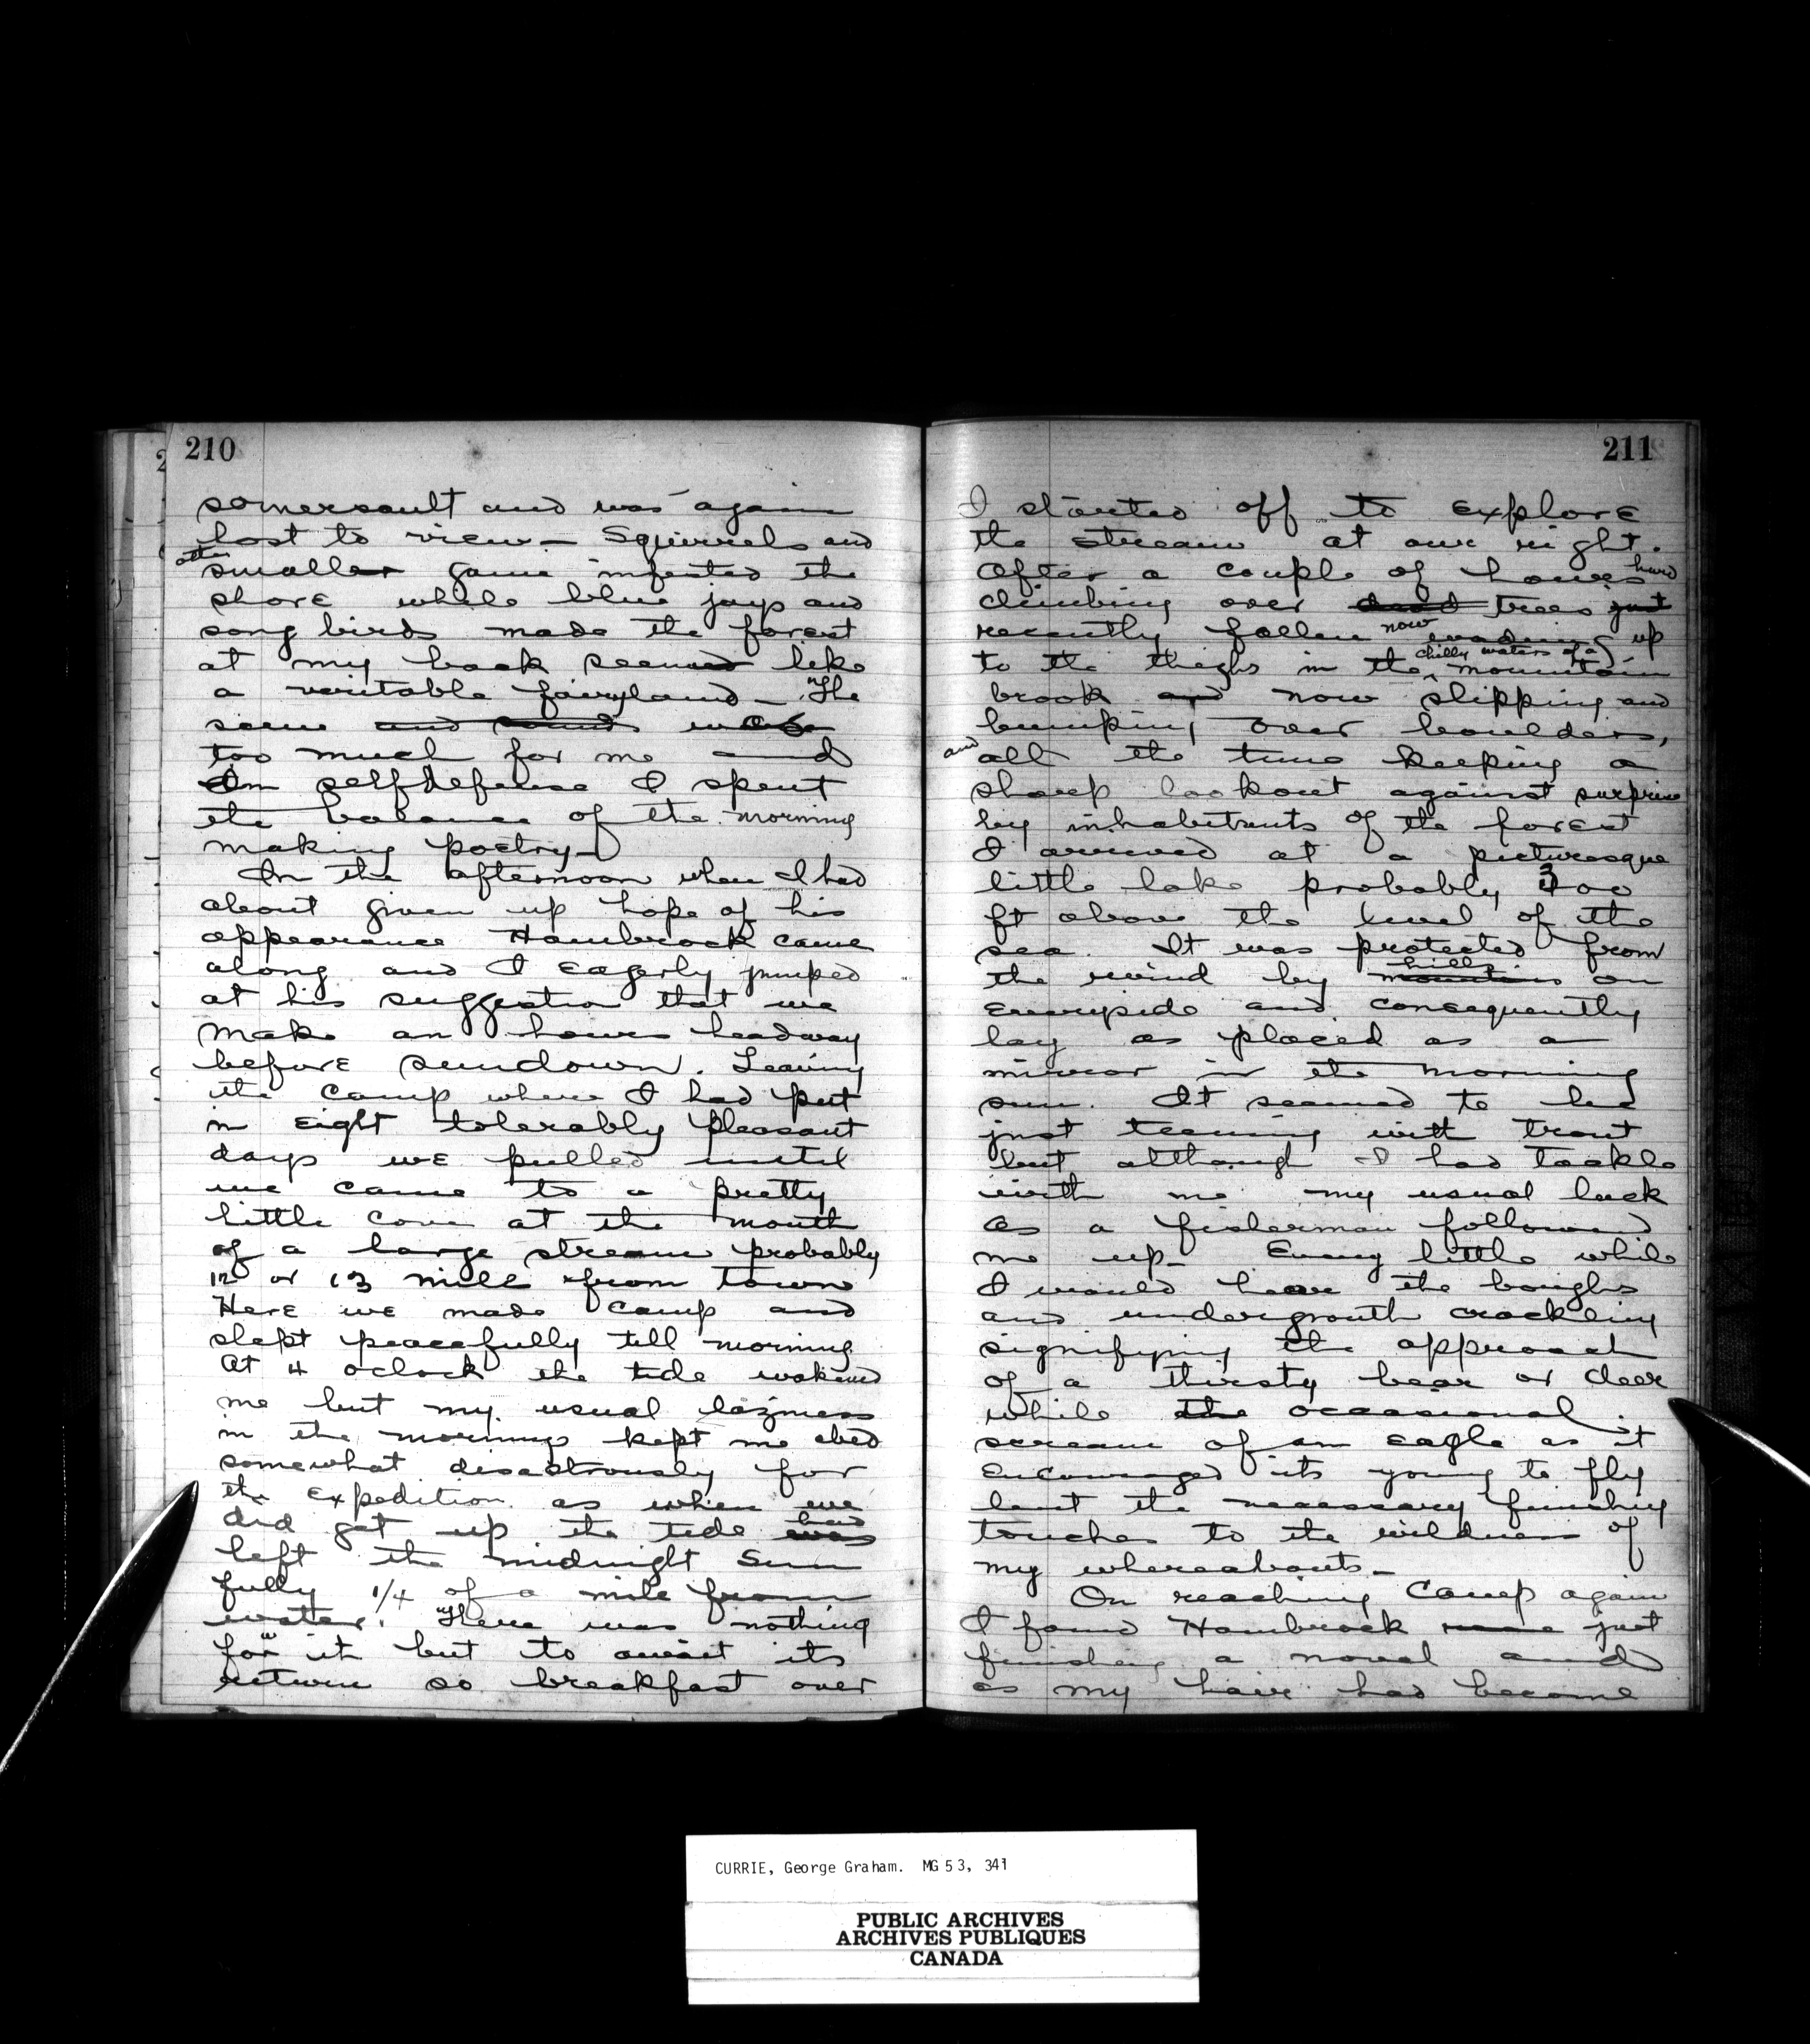 210
somersault and was again
lost to view — Squirrels and
other
smaller game infested the
shore while blue jays and
song birds made the forest
at my back seemed like
a veritable fairyland — The
scene and sounds was
too much for me and
In selfdefense I spent
the balance of the morning
making poetry —
In the afternoon when I had
about given up hope of his
appearance Hambrock came
along and I eagerly jumped
at his suggestion that we
make an hours headway
before sundown. Leaving
the camp where I had put
in eight tolerably pleasant
days we pulled until
we came to a pretty
little cove at the mouth
of a large stream probably
12 or 13 mile from town
Here we made camp and
slept peacefully till morning
At 4 oclock the tide wakened
me but my usual laziness
in the mornings kept me abed
somewhat disastrously for
the expedition as when we
had
did get up the tide was
left the midnight Sun
fully 1/4 of a mile from
water. There was nothing
for it but to await its
return so breakfast over
211
I started off to explore
the stream at our right.
After a couple of hours hard
climbing over dead trees just
recently fallen now wading up
chilly waters of a
to the thighs in the mountain
brook and now slipping and
bumping over boulders,
and
all the time keeping a
sharp lookout against surprise
by inhabitants of the forest
I arrived at a picturesque
little lake probably 300
ft above the level of the
sea. It was protected from
hills
the wind by mountains on
everyside and consequently
lay as placed as a
mirror in the morning
sun. It seemed to be
just teeming with trout
but although I had tackle
with me my usual luck
as a fisherman followed
me up — Every little while
I would hear the boughs
and undergrouth crackling
signifying the approach
of a thirsty bear or deer
while the occasional
scream of an eagle as it
encouraged its young to fly
lent the necessary finishing
touches to the wildness of
my whereabouts —
On reaching Camp again
I found Hambrock just
finishing a novel and
as my hair had become
CURRIE, George Graham. MG 53, 341
PUBLIC ARCHIVES
ARCHIVES PUBLIQUES
CANADA